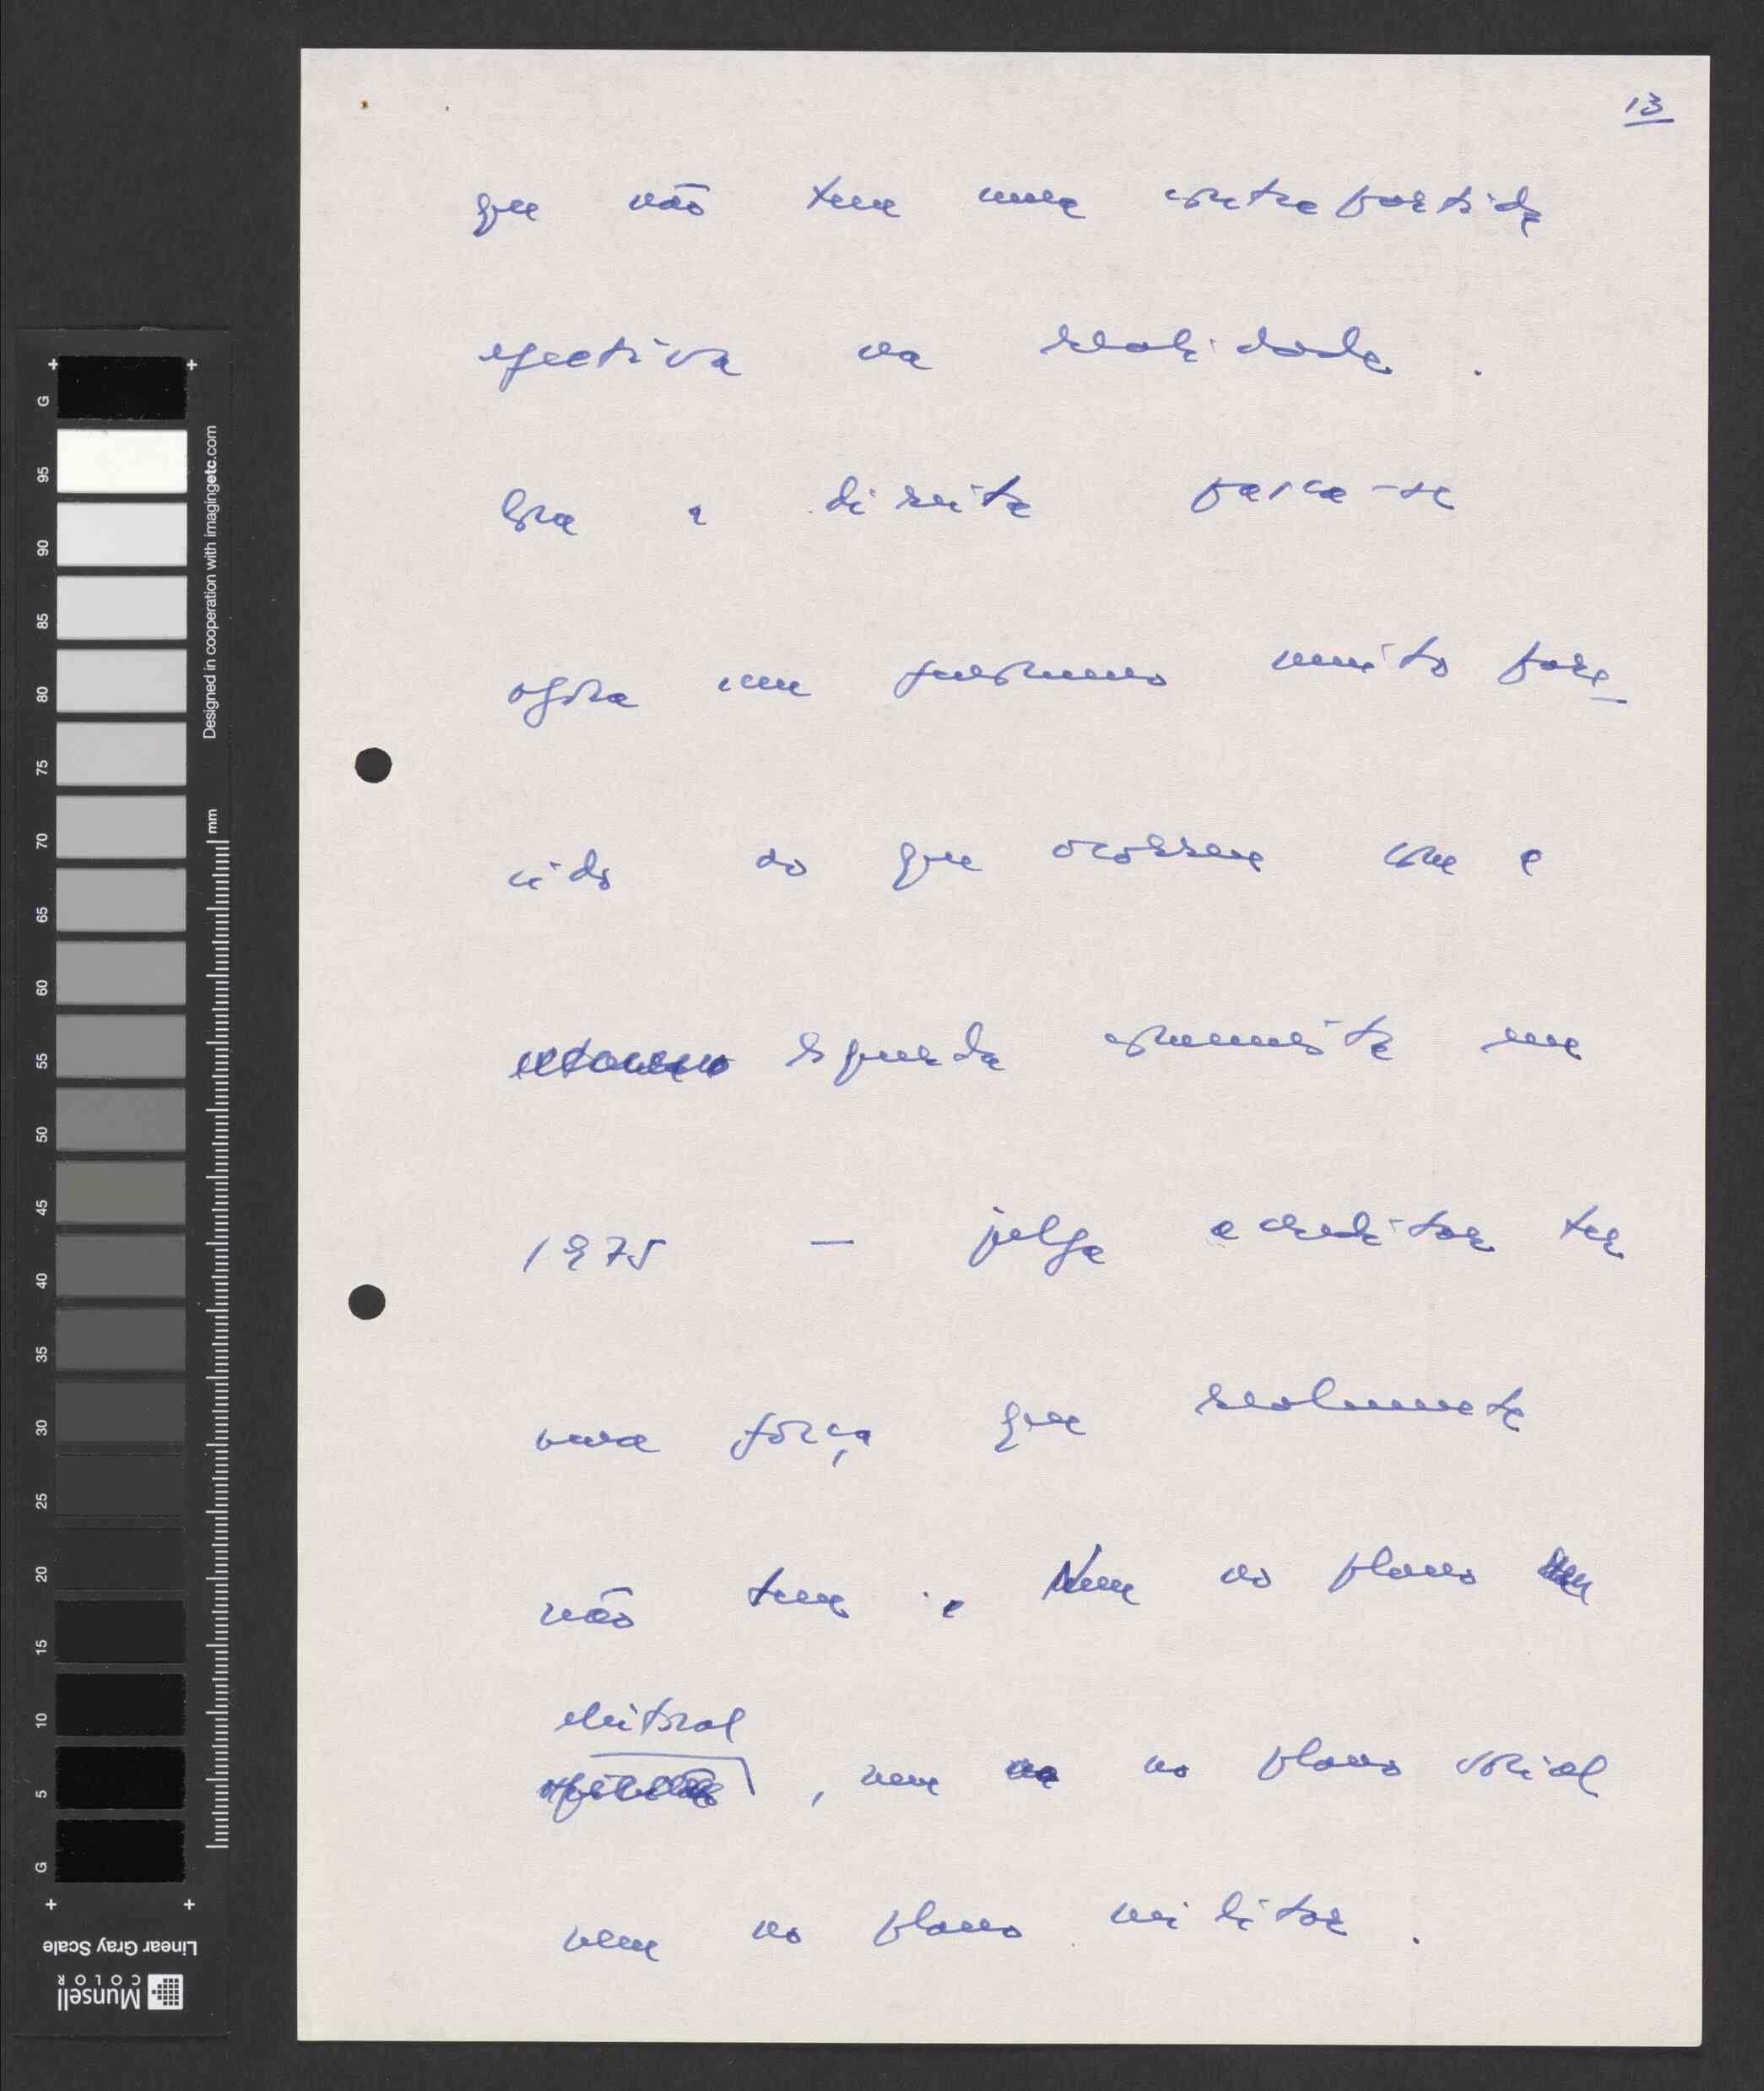 13
que não tem uma contrapartida
efectiva na realidade.
Ora a direita passa-se
agora um fenómeno muito pare_
cido ao que ocorreu com a
esquerda comunista em
1975 — julga acreditar ter
uma força que realmente
não tem. Nem no plano
eleitoral
, nem no plano social
nem no plano militar.
G
95
90
85
80
75
70
65
60
55
50
45
40
35
30
25
20
15
10
5
G
Designed in cooperation with imagingetc.com
mm
Linear Gray Scale
Munsell
COLOR